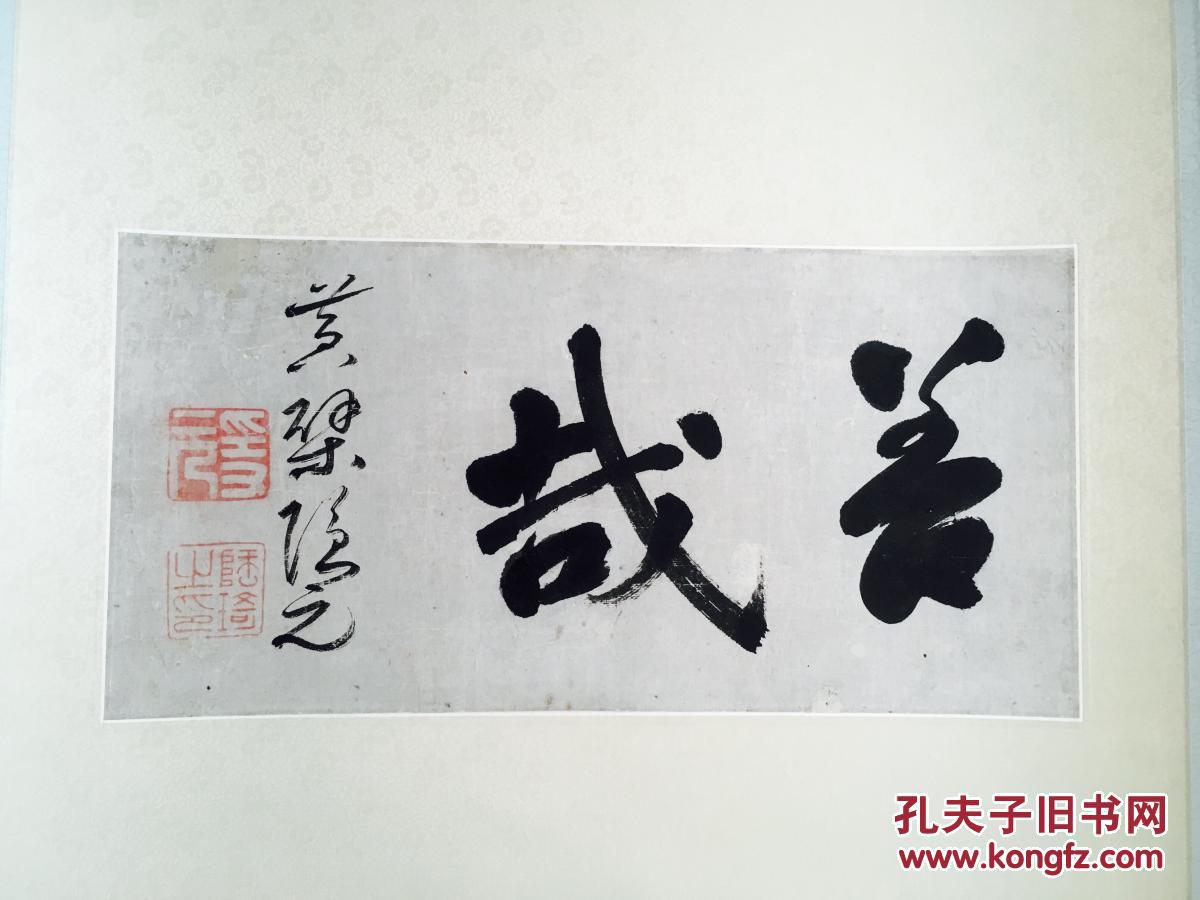 善哉
黄檗隐元
孔夫子旧书网
www.kongfz.com